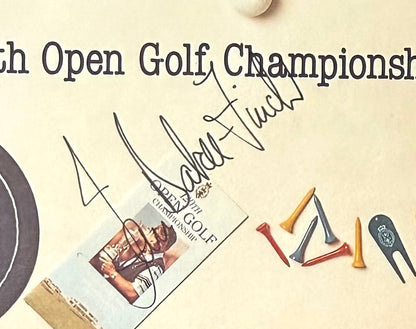 th Open Golf Championsh
Ian Baker-Finch
TH
OPEN GOLF
CHAMPIONSHIP